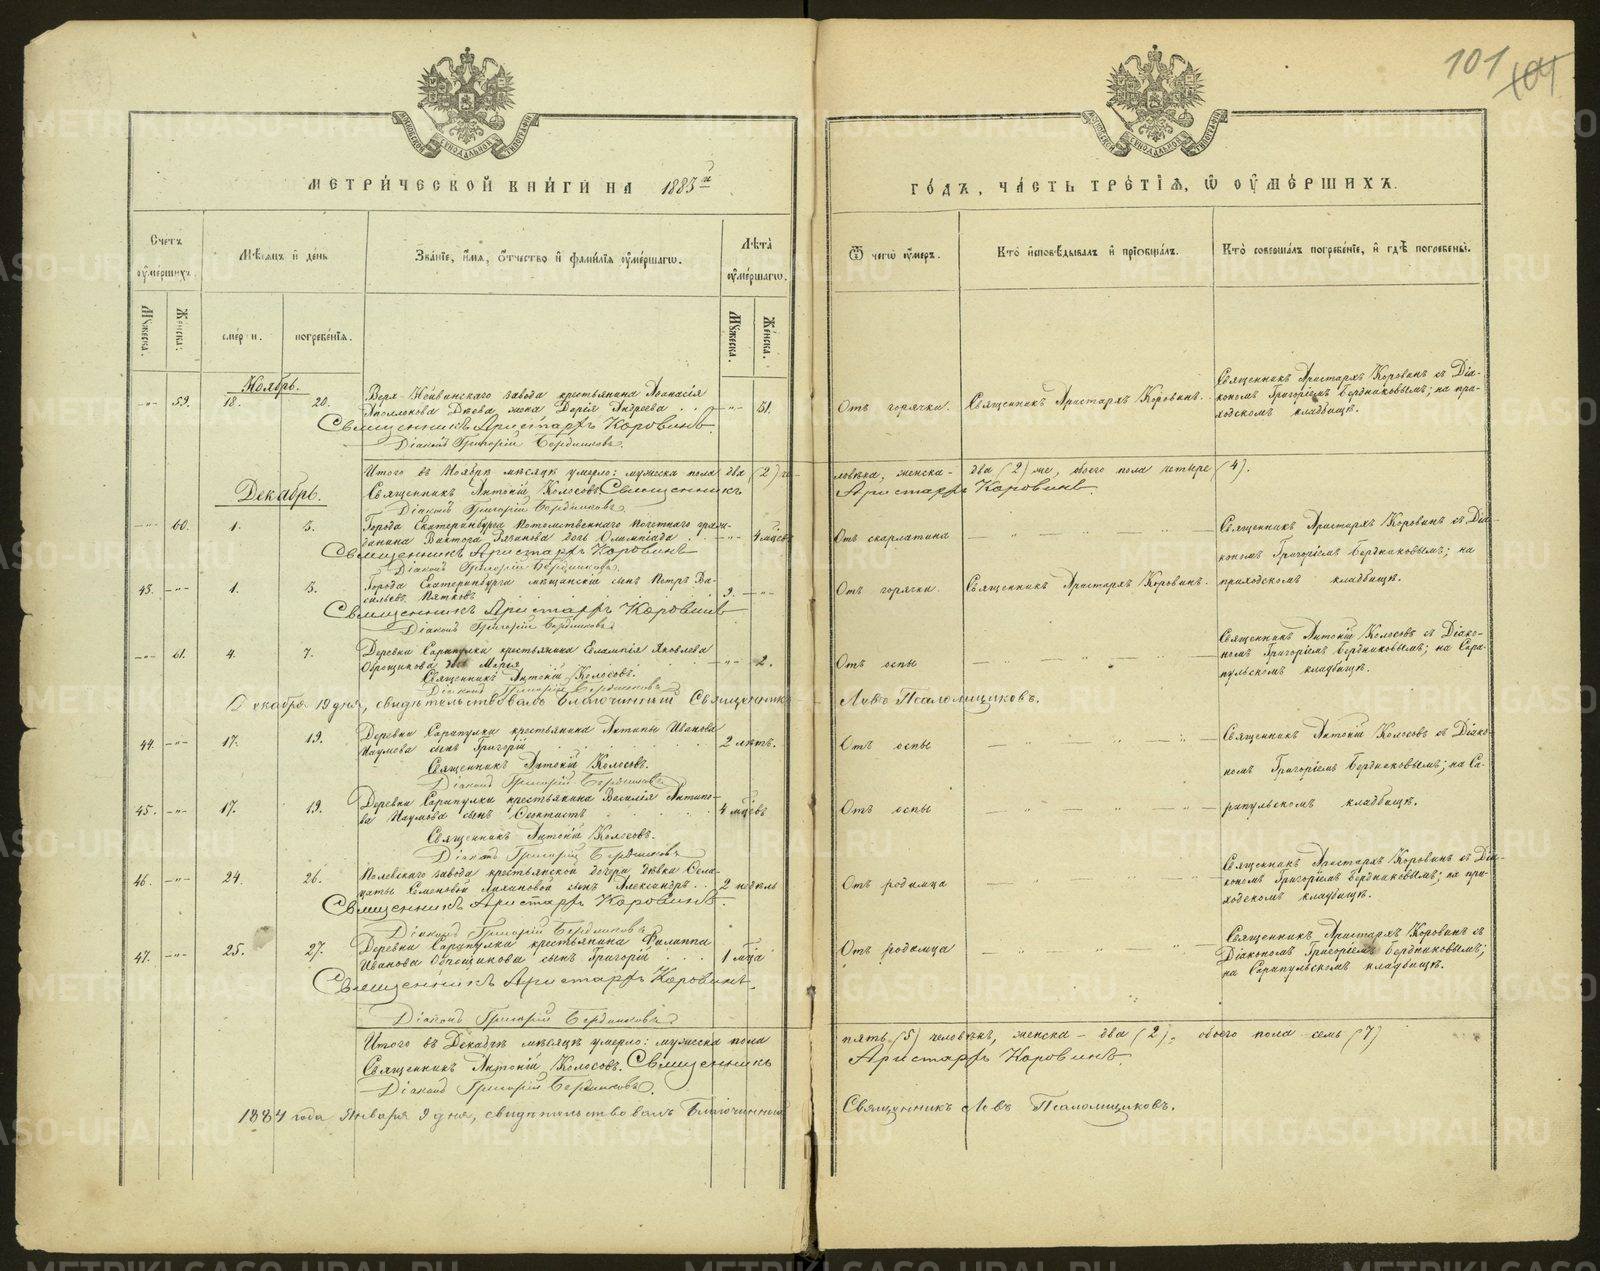 101 104
МЕТРИЧЕСКОЙ КНИГИ НА 1883й
ГОДЪ, ЧАСТЬ ТРЕТІЯ, Ѿ ОУМЕРШИХЪ.
Счетъ оумершихъ.
Мѣсяцъ и день
Званїе, имя, ѻтчество и фамилїя оумершагѡ.
Лѣта оумершагѡ.
Ѿ чегѡ оумеръ.
Кто исповѣдывалъ и прїобщалъ.
Кто совершалъ погребенїе, и гдѣ погребены.
Мужеска.
Женска.
смерти.
погребенїя.
Мужеска.
Женска.
Ноябрь.
-"- 59. 18. 20. Верх-Нейвинскаго завода крестьянина Аѳанасія
Аполлонова Дѣева жена Дарія Андреева . . -"- 51.
Отъ горячки. Священникъ Аристархъ Коровинъ.
Священникъ Аристархъ Коровинъ съ Діа-
кономъ Григоріемъ Бердниковымъ; на при-
ходскомъ кладбищѣ.
Священникъ Аристархъ Коровинъ
Діаконъ Григорій Бердниковъ.
Итого въ Ноябрѣ мѣсяцѣ умерло: мужеска пола два (2) че-
ловѣка, женска - два (2) же, обоего пола четыре (4).
Священникъ Антоній Колосовъ Священникъ
Аристархъ Коровинъ.
Діаконъ Григорій Бердниковъ
Декабрь.
-"- 60. 1. 3. Города Екатеринбурга потомственнаго почетнаго граж-
данина Виктора Рязанова дочь Олимпіада . . -"- 4 мѣсяц
Отъ скарлатина
Священникъ Аристархъ Коровинъ съ Діа-
кономъ Григоріемъ Бердниковымъ; на
приходскомъ кладбищѣ.
Священникъ Аристархъ Коровинъ
Діаконъ Григорій Бердниковъ.
43. -"- 1. 3. Города Екатеринбурга мѣщанскій сынъ Петръ Ва-
сильевъ Пятковъ . . . 9. -"-
Отъ горячки. Священникъ Аристархъ Коровинъ.
Священникъ Аристархъ Коровинъ
Діаконъ Григорій Бердниковъ
-"- 61. 4. 7. Деревни Сарапулки крестьянина Евлампія Яковлева
Оброщикова дочь Марія . . -"- 2.
Отъ оспы
Священникъ Антоній Колосовъ съ Діако-
номъ Григоріемъ Бердниковымъ; на Сара-
пульскомъ кладбищѣ.
Священникъ Антоній Колосовъ.
Діаконъ Григорій Бердниковъ
Декабря 19 дня, свидѣтельствовалъ Благочинный Священникъ
Левъ Псаломщиковъ.
44. -"- 17. 19. Деревни Сарапулки крестьянина Антипы Иванова
Наумова сынъ Григорій . . . 2 лѣтъ.
Отъ оспы
Священникъ Антоній Колосовъ съ Діако-
номъ Григоріемъ Бердниковымъ; на Са-
рапульскомъ кладбищѣ.
Священникъ Антоній Колосовъ.
Діаконъ Григорій Бердниковъ
45. -"- 17. 19. Деревни Сарапулки крестьянина Василія Антипо-
ва Наумова сынъ Ѳеоктистъ . . . 4 мѣсцевъ
Отъ оспы
Священникъ Антоній Колосовъ.
Діаконъ Григорій Бердниковъ
46. -"- 24. 26. Полевскаго завода крестьянской дочери дѣвки
Семеновой сынъ Александръ . . 2 недѣль
Отъ родимца
Священникъ Аристархъ Коровинъ съ Діа-
кономъ Григоріемъ Бердниковымъ; на при-
ходскомъ кладбищѣ.
Священникъ Аристархъ Коровинъ.
Діаконъ Григорій Бердниковъ
47. -"- 25. 27. Деревни Сарапулка крестьянина Филиппа
Иванова Оброщикова сынъ Григорій . . . 1 мѣца
Отъ родимца
Священникъ Аристархъ Коровинъ съ
Діакономъ Григоріемъ Бердниковымъ;
на Сарапульскомъ кладбищѣ.
Священникъ Аристархъ Коровинъ.
Діаконъ Григорій Бердниковъ
Итого въ Декабрѣ мѣсяцѣ умерло: мужеска пола
пять (5) человѣкъ, женска - два (2), обоего пола семь (7)
Священникъ Антоній Колосовъ. Священникъ
Аристархъ Коровинъ
Діаконъ Григорій Бердниковъ.
1884 года Января 9 дня, свидѣтельствовалъ Благочинный
Священникъ Левъ Псаломщиковъ.
METRIKI.GASO-URAL.RU